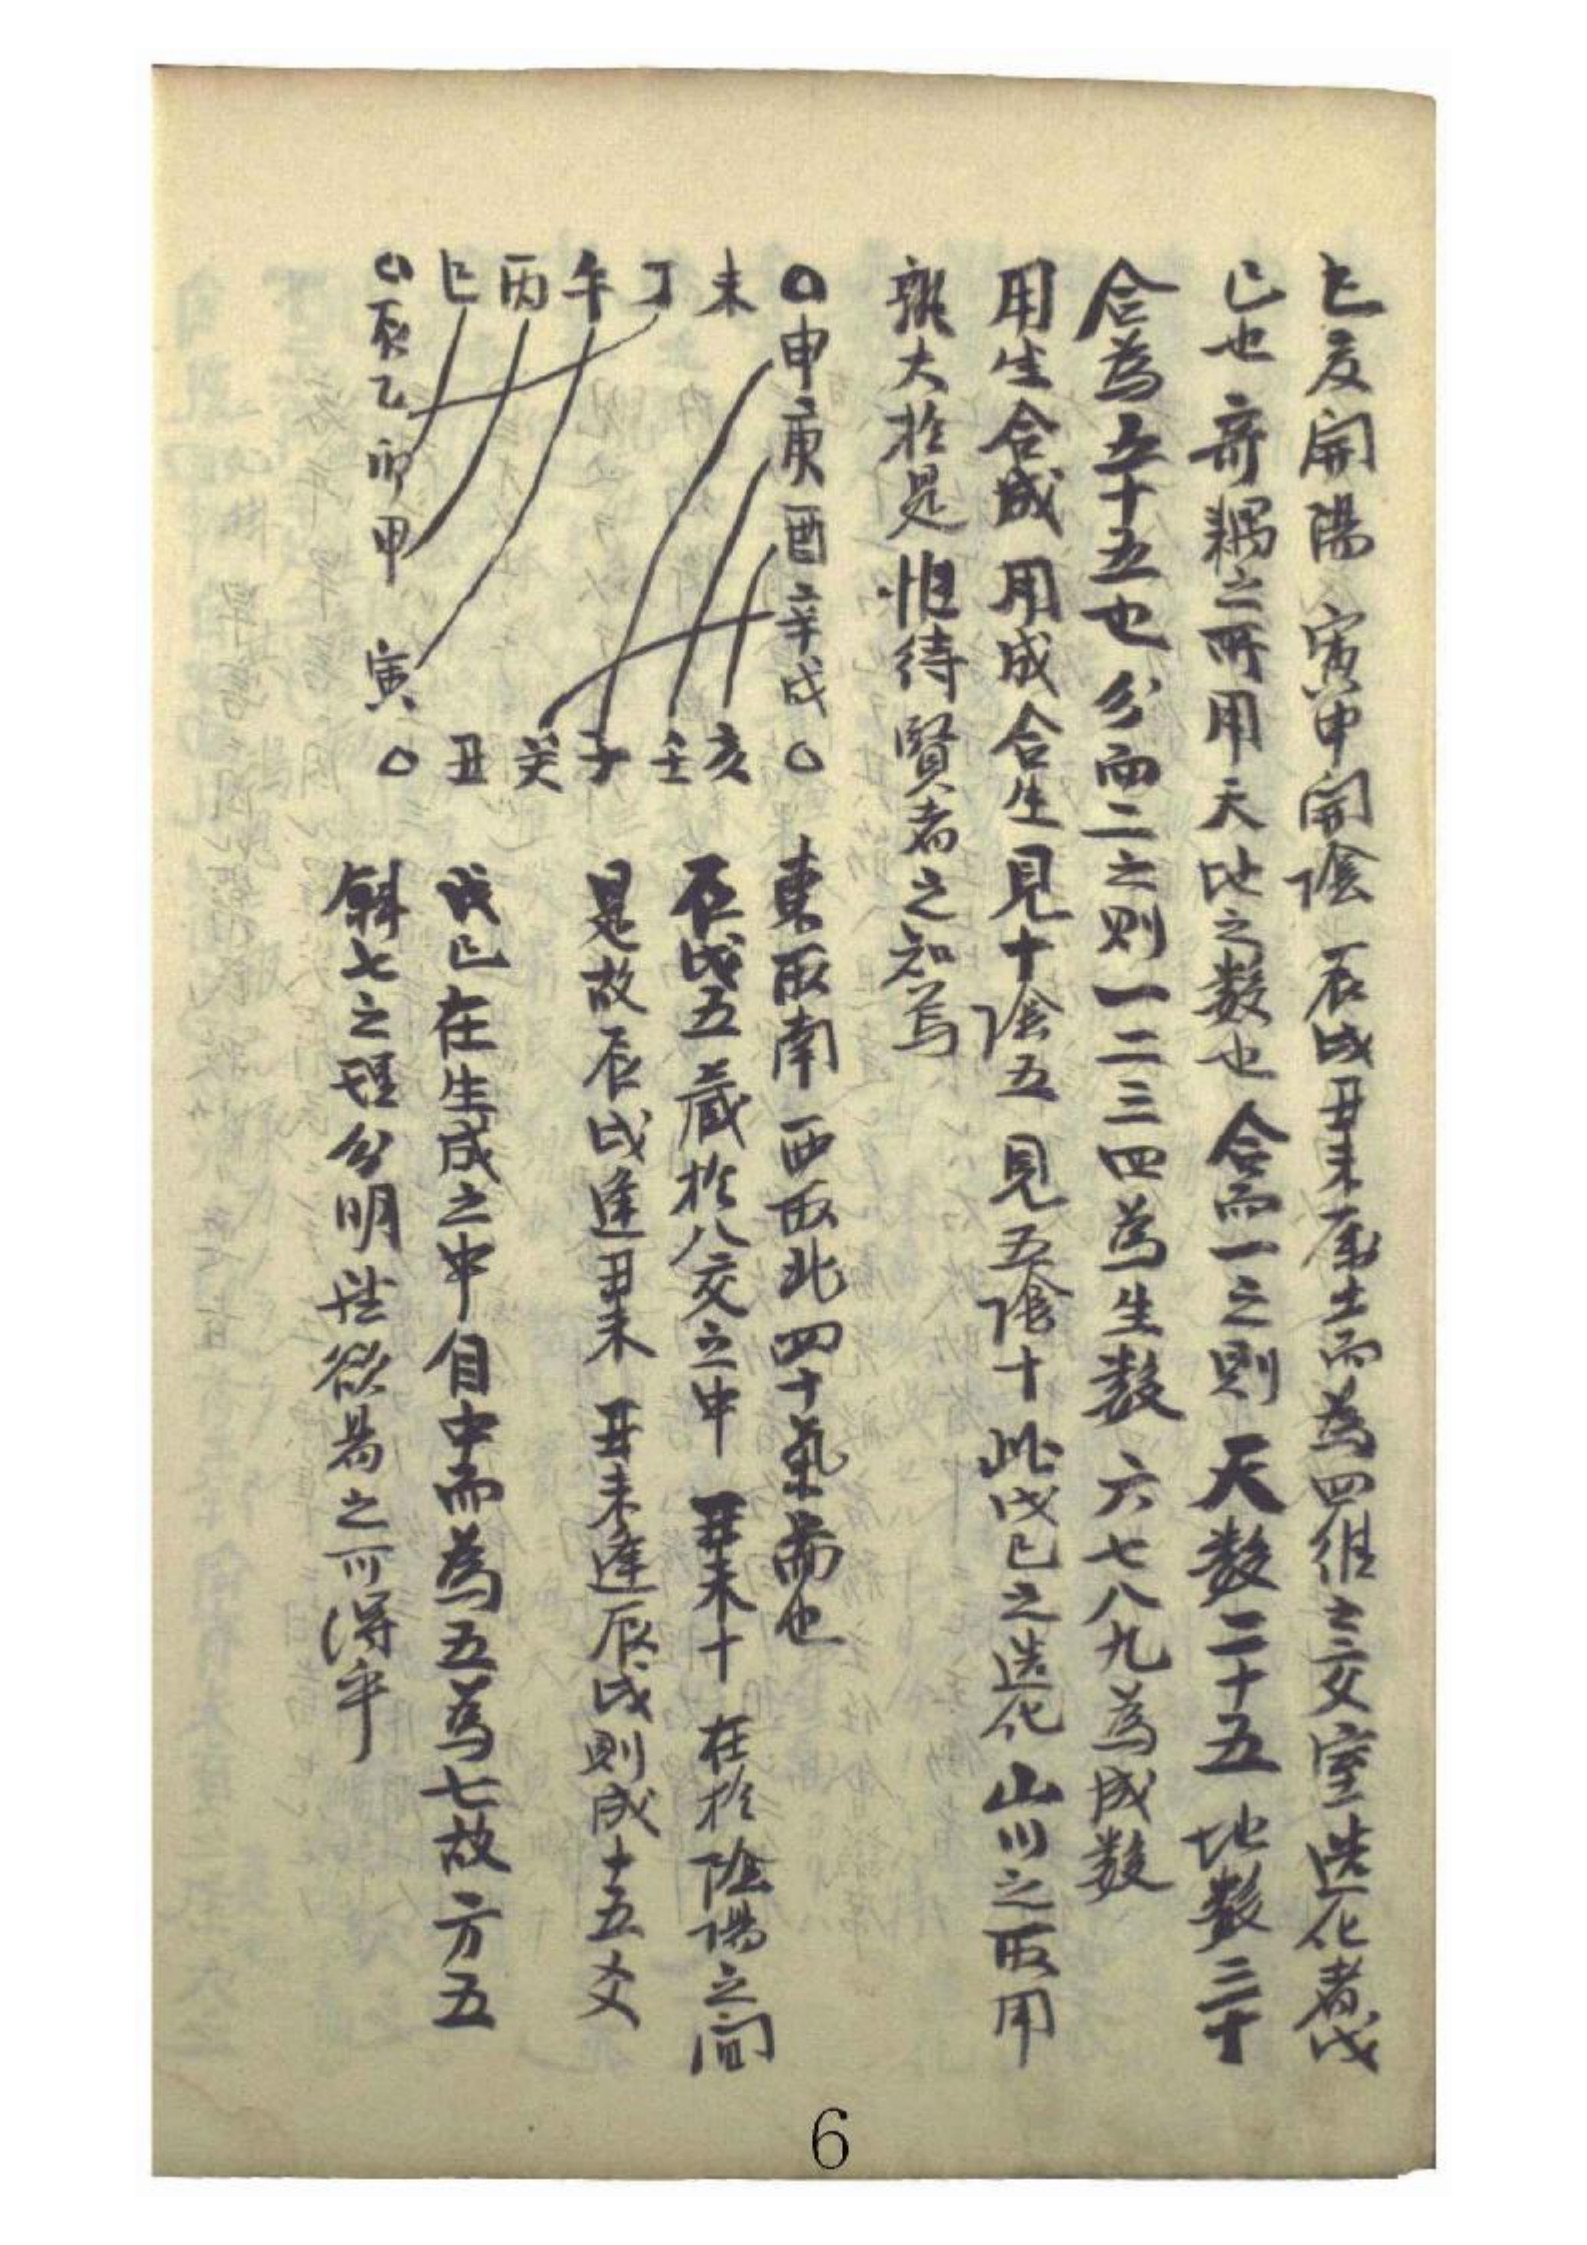 巳亥開陽 寅申開陰 辰戌丑未屬土而爲四維之交 造化者戊
己也 奇耦之所用天地之数也 合而一之則 天數二十五 地數三十
合爲五十五也 分而二之則一二三四爲生數 六七八九爲成數
用生合成 用成合生 見十陰五 見五陰十 此戊己之造化 山川之取用
孰大於是 惟待賢者之知焉
〇申庚酉辛戌〇
未丁午丙巳
〇辰乙卯甲寅〇
亥壬子癸丑
東取南 西取北 四十氣而也
辰戌五藏於八交之中 丑未十 在於陰陽之間
是故辰戌逢丑未 丑未逢辰戌則成十五爻
戊己在生成之中 自中而爲五爲七故方五
斜七之理分明 欲易之可得乎